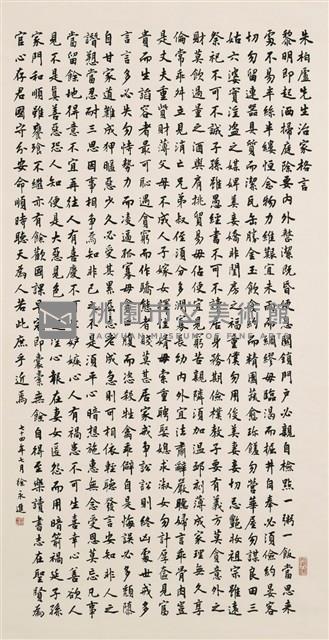 朱柏廬先生治家格言
黎明即起洒掃庭除要內外整潔既昏便息關鎖門戶必親自檢點一粥一飯當思來
處不易半絲半縷恒念物力維艱宜未雨而綢繆毋臨渴而掘井自奉必須儉約宴客
切勿留連器具質而潔瓦缶勝金玉飲食約而精園蔬愈珍饈勿營華屋勿謀良田三
姑六婆實淫盜之媒婢美妾嬌非閨房之福童僕勿用俊美妻妾切忌艷妝祖宗雖遠
祭祀不可不誠子孫雖愚經書不可不讀居身務期儉樸教子要有義方莫貪意外之
財莫飲過量之酒與肩挑貿易毋佔便宜見窮苦親鄰須加溫卹刻薄成家理無久享
倫常乖舛立見消亡兄弟叔侄須分多潤寡長幼內外宜法肅辭嚴聽婦言乖骨肉豈
是丈夫重貲財薄父母不成人子嫁女擇佳婿毋索重聘娶媳求淑女勿計厚奩見富
貴而生諂容者最可恥遇貧窮而作驕態者賤莫甚居家戒爭訟訟則終凶處世戒多
言言多必失勿恃勢力而凌逼孤寡毋貪口腹而恣殺牲禽乖僻自是悔誤必多頹隳
自甘家道難成狎暱惡少久必受其累屈志老成急則可相依輕聽發言安知非人之
譖愬當忍耐三思因事相爭焉知非己之不是須平心暗想施惠無念受恩莫忘凡事
當留餘地得意不宜再往人有喜慶不可生妒嫉心人有禍患不可生喜幸心善欲人
見不是真善惡恐人知便是大惡見色而起淫心報在妻女匿怨而用暗箭禍延子孫
家門和順雖饔飧不繼亦有餘歡國課早完即囊橐無餘自得至樂讀書志在聖賢為
官心存君國守分安命順時聽天為人若此庶乎近焉
七十四年七月 徐永進
桃園市立美術館